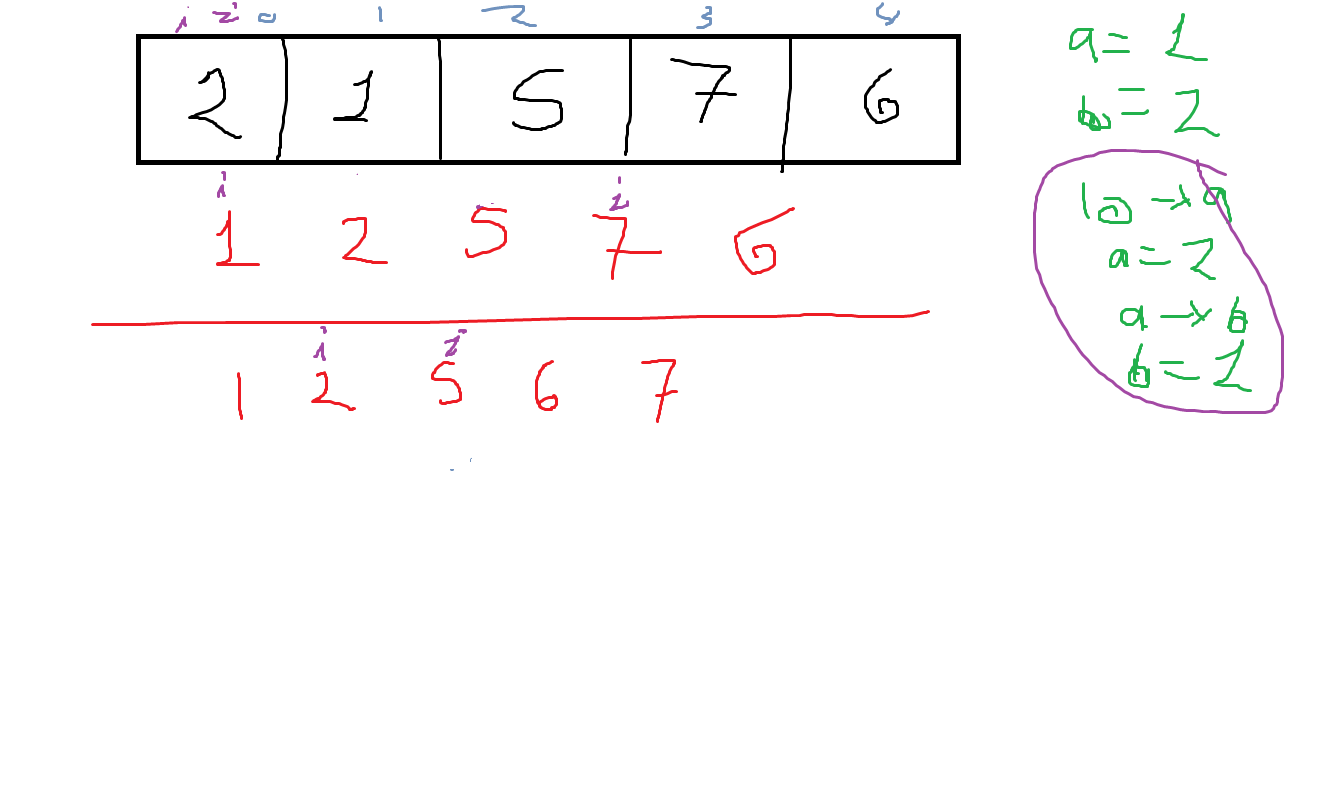 i i 0 1 2 3 4
2 1 5 7 6
i i
1 2 5 7 6
i i
1 2 5 6 7
a = 1
b = 2
b → a
a = 2
a → b
b = 2